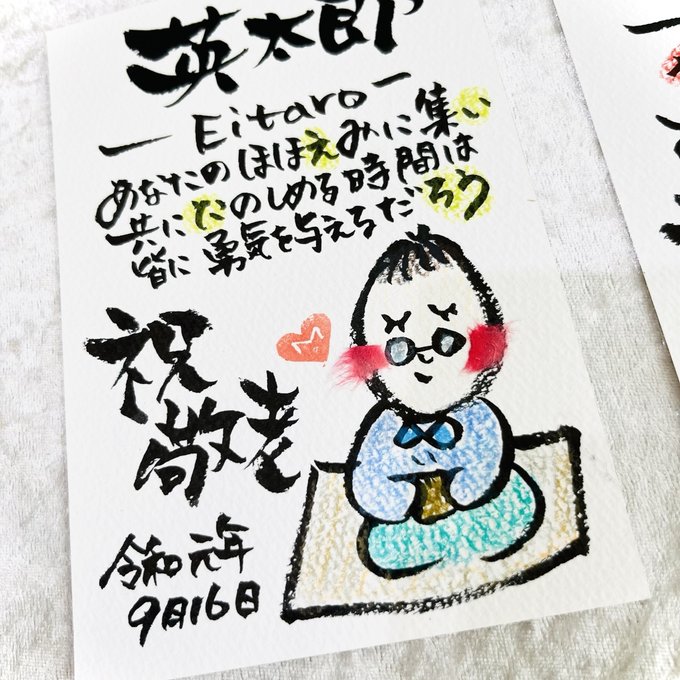 英太郎
— Eitaro —
あなたのほほえみに集い
共にたのしめる時間は
皆に勇気を与えるだろう
祝
敬老
令和元年
9月16日